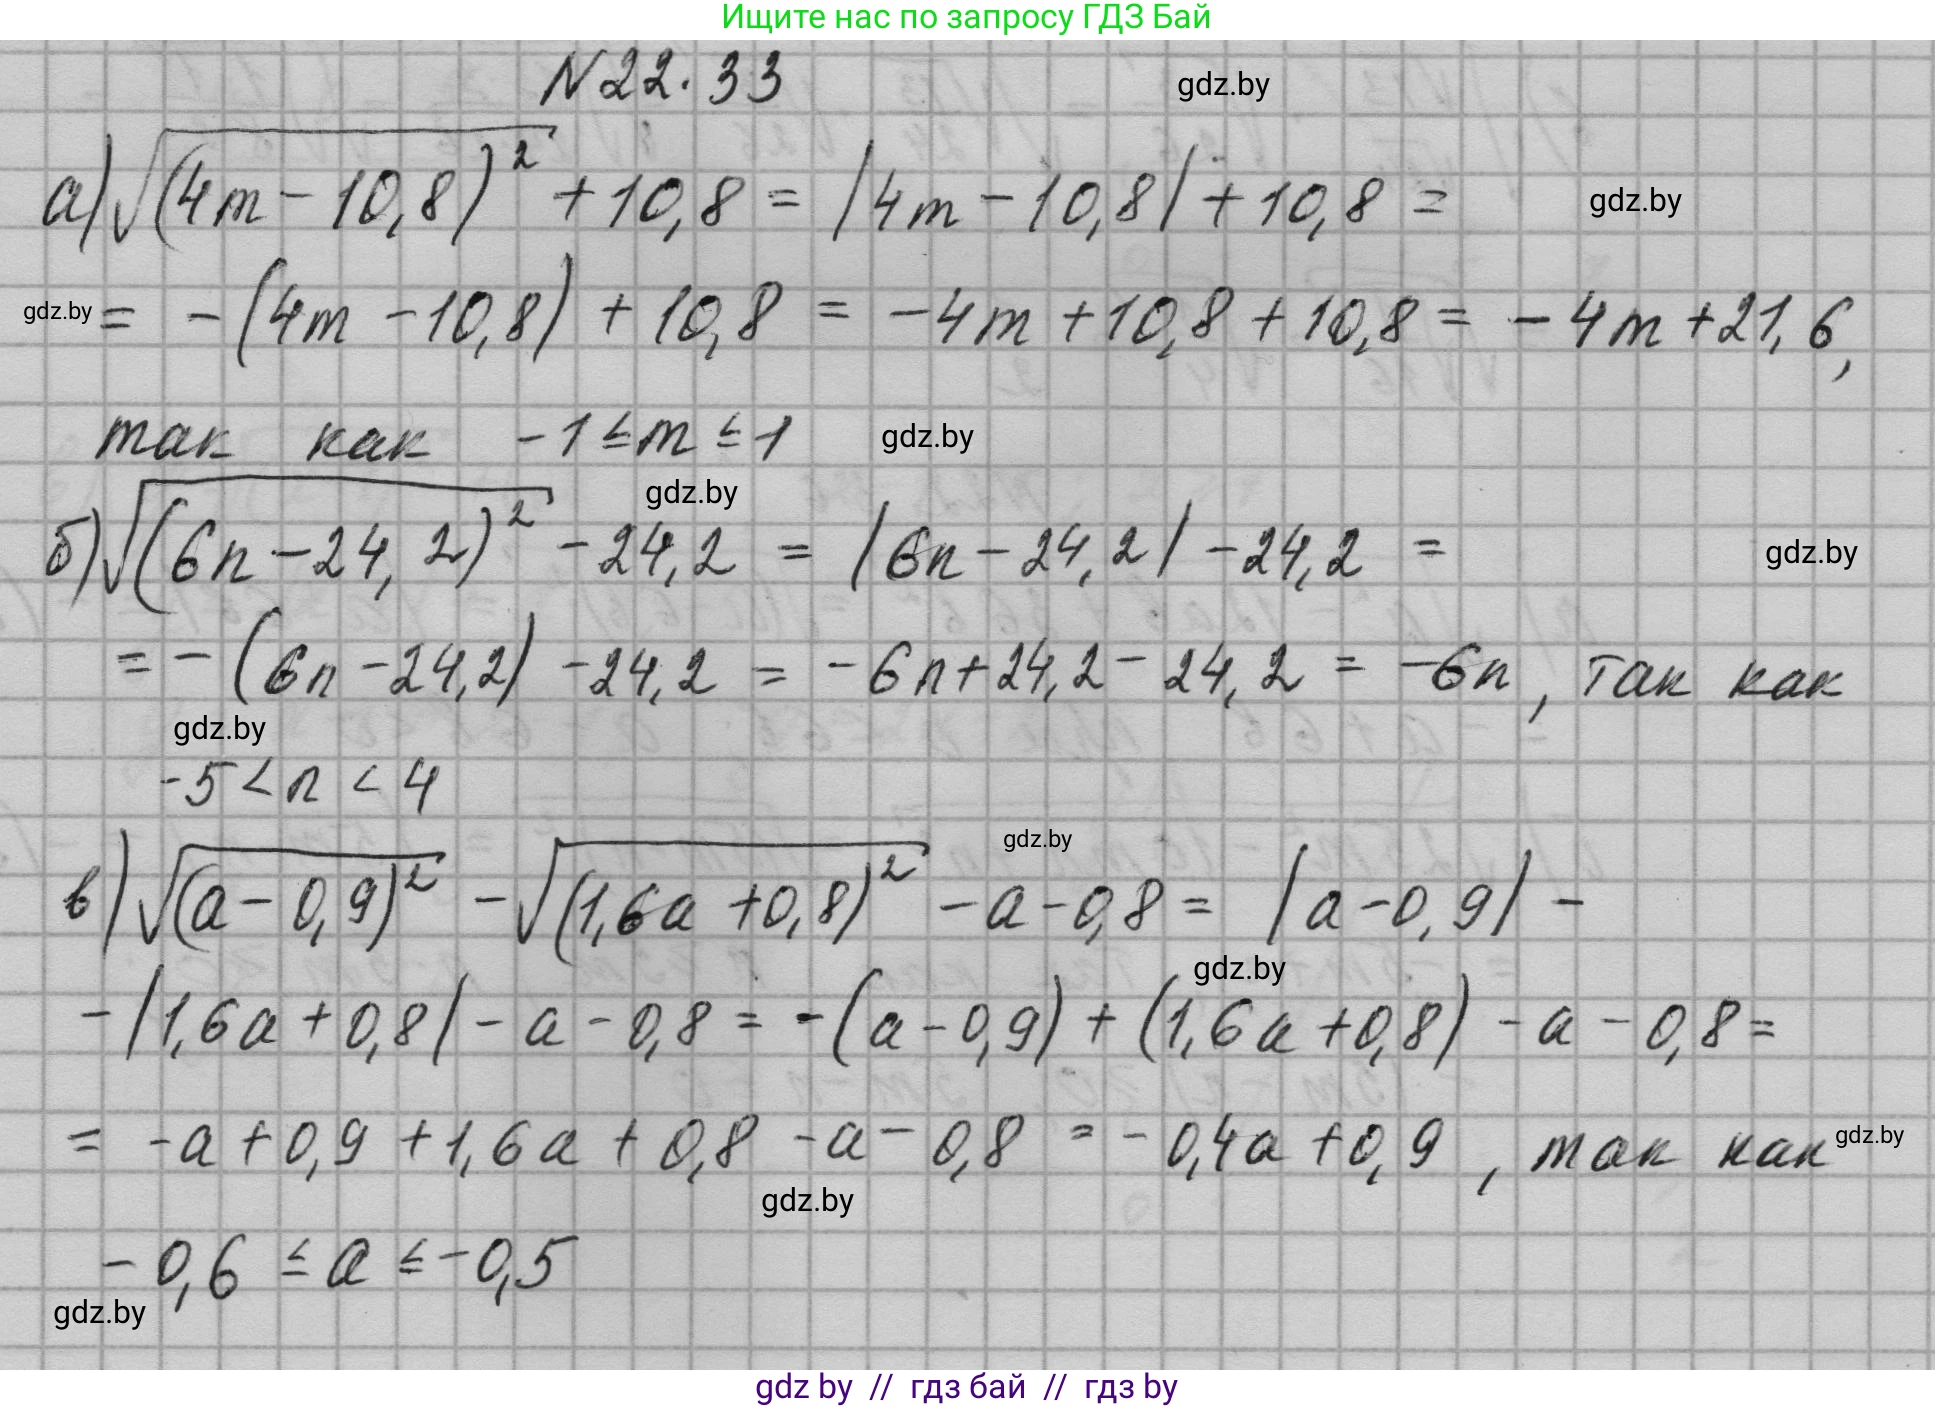 Ищите нас по запросу ГДЗ Бай
N22.33
gdz.by
а) √(4m - 10,8)² + 10,8 = |4m - 10,8| + 10,8 =
gdz.by
gdz.by
= -(4m - 10,8) + 10,8 = -4m + 10,8 + 10,8 = -4m + 21,6,
так как -1 ≤ m ≤ 1
gdz.by
gdz.by
б) √(6n - 24,2)² - 24,2 = |6n - 24,2| - 24,2 =
gdz.by
= -(6n - 24,2) - 24,2 = -6n + 24,2 - 24,2 = -6n, так как
gdz.by
-5 < n < 4
gdz.by
в) √(a - 0,9)² - √(1,6a + 0,8)² - a - 0,8 = |a - 0,9| -
gdz.by
- |1,6a + 0,8| - a - 0,8 = -(a - 0,9) + (1,6a + 0,8) - a - 0,8 =
= -a + 0,9 + 1,6a + 0,8 - a - 0,8 = -0,4a + 0,9, так как
gdz.by
gdz.by
-0,6 ≤ a ≤ -0,5
gdz.by
gdz by // гдз бай // гдз by